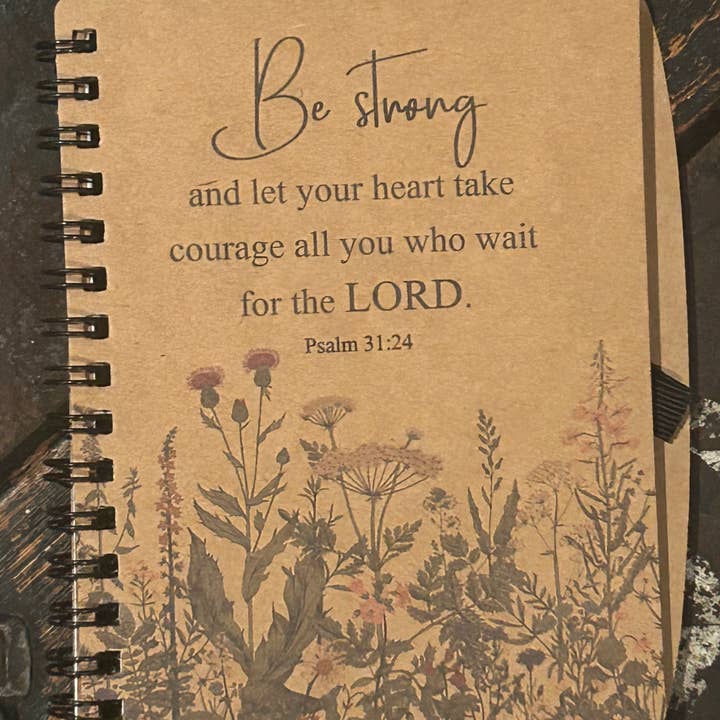 Be strong
and let your heart take
courage all you who wait
for the LORD.
Psalm 31:24